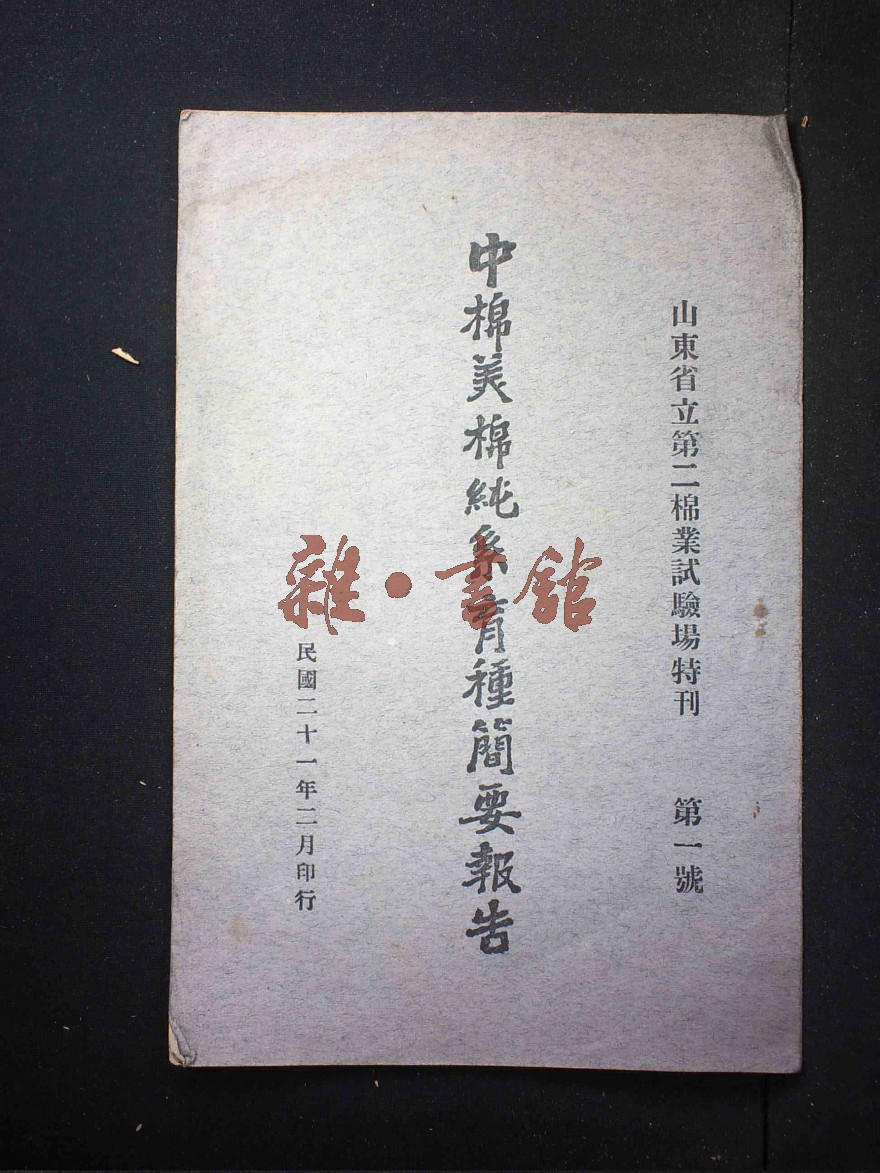 山東省立第二棉業試驗場特刊　第一號
中棉美棉純系育種簡要報告
民國二十一年二月印行
雜·書館